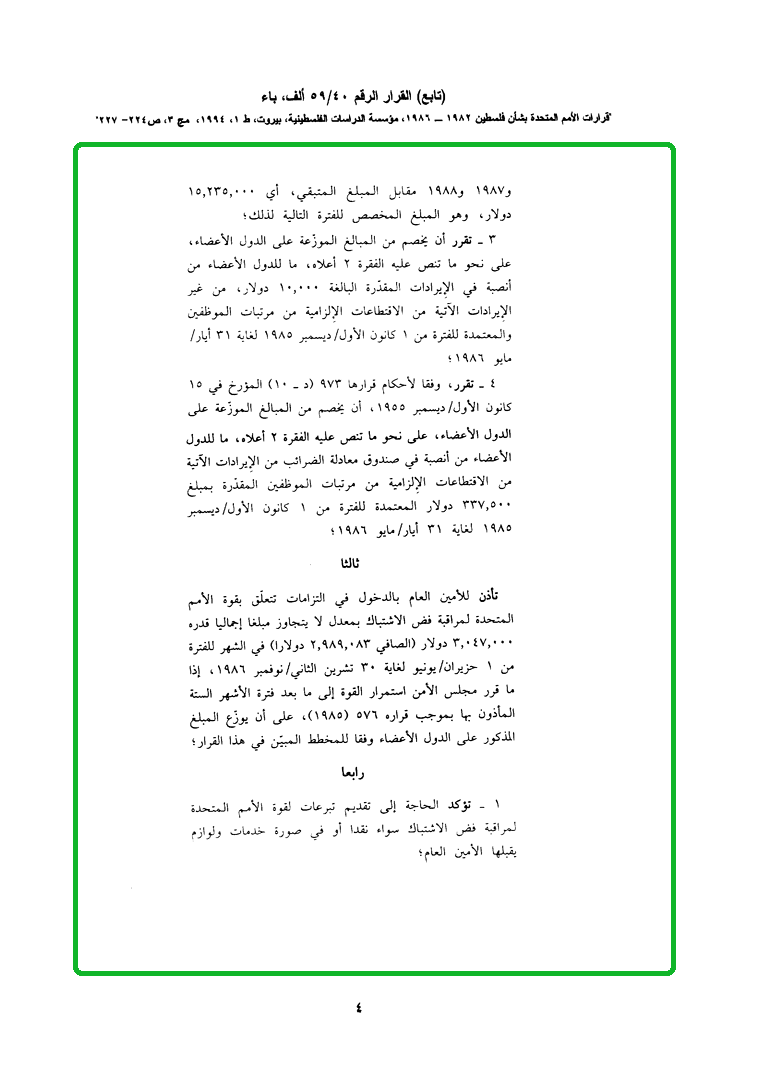 (تابع) القرار الرقم ٥٩/٤٠ ألف، باء
"قرارات الأمم المتحدة بشأن فلسطين ١٩٨٢ ــ ١٩٨٦، مؤسسة الدراسات الفلسطينية، بيروت، ط ١، ١٩٩٤، مج ٣، ص٢٢٤- ٢٢٧"
و١٩٨٧ و١٩٨٨ مقابل المبلغ المتبقي، أي ١٥,٢٣٥,٠٠٠
دولار، وهو المبلغ المخصص للفترة التالية لذلك؛
٣ ـ تقرر أن يخصم من المبالغ الموزّعة على الدول الأعضاء،
على نحو ما تنص عليه الفقرة ٢ أعلاه، ما للدول الأعضاء من
أنصبة في الإيرادات المقدّرة البالغة ١٠,٠٠٠ دولار، من غير
الإيرادات الآتية من الاقتطاعات الإلزامية من مرتبات الموظفين
والمعتمدة للفترة من ١ كانون الأول/ديسمبر ١٩٨٥ لغاية ٣١ أيار/
مايو ١٩٨٦؛
٤ ـ تقرر، وفقا لأحكام قرارها ٩٧٣ (د ـ ١٠) المؤرخ في ١٥
كانون الأول/ديسمبر ١٩٥٥، أن يخصم من المبالغ الموزّعة على
الدول الأعضاء، على نحو ما تنص عليه الفقرة ٢ أعلاه، ما للدول
الأعضاء من أنصبة في صندوق معادلة الضرائب من الإيرادات الآتية
من الاقتطاعات الإلزامية من مرتبات الموظفين المقدّرة بمبلغ
٣٣٧,٥٠٠ دولار المعتمدة للفترة من ١ كانون الأول/ديسمبر
١٩٨٥ لغاية ٣١ أيار/مايو ١٩٨٦؛
ثالثا
تأذن للأمين العام بالدخول في التزامات تتعلّق بقوة الأمم
المتحدة لمراقبة فض الاشتباك بمعدل لا يتجاوز مبلغا إجماليا قدره
٣,٠٤٧,٠٠٠ دولار (الصافي ٢,٩٨٩,٠٨٣ دولارا) في الشهر للفترة
من ١ حزيران/يونيو لغاية ٣٠ تشرين الثاني/نوفمبر ١٩٨٦، إذا
ما قرر مجلس الأمن استمرار القوة إلى ما بعد فترة الأشهر الستة
المأذون بها بموجب قراره ٥٧٦ (١٩٨٥)، على أن يوزّع المبلغ
المذكور على الدول الأعضاء وفقا للمخطط المبيّن في هذا القرار؛
رابعا
١ ـ تؤكد الحاجة إلى تقديم تبرعات لقوة الأمم المتحدة
لمراقبة فض الاشتباك سواء نقدا أو في صورة خدمات ولوازم
يقبلها الأمين العام؛
٤